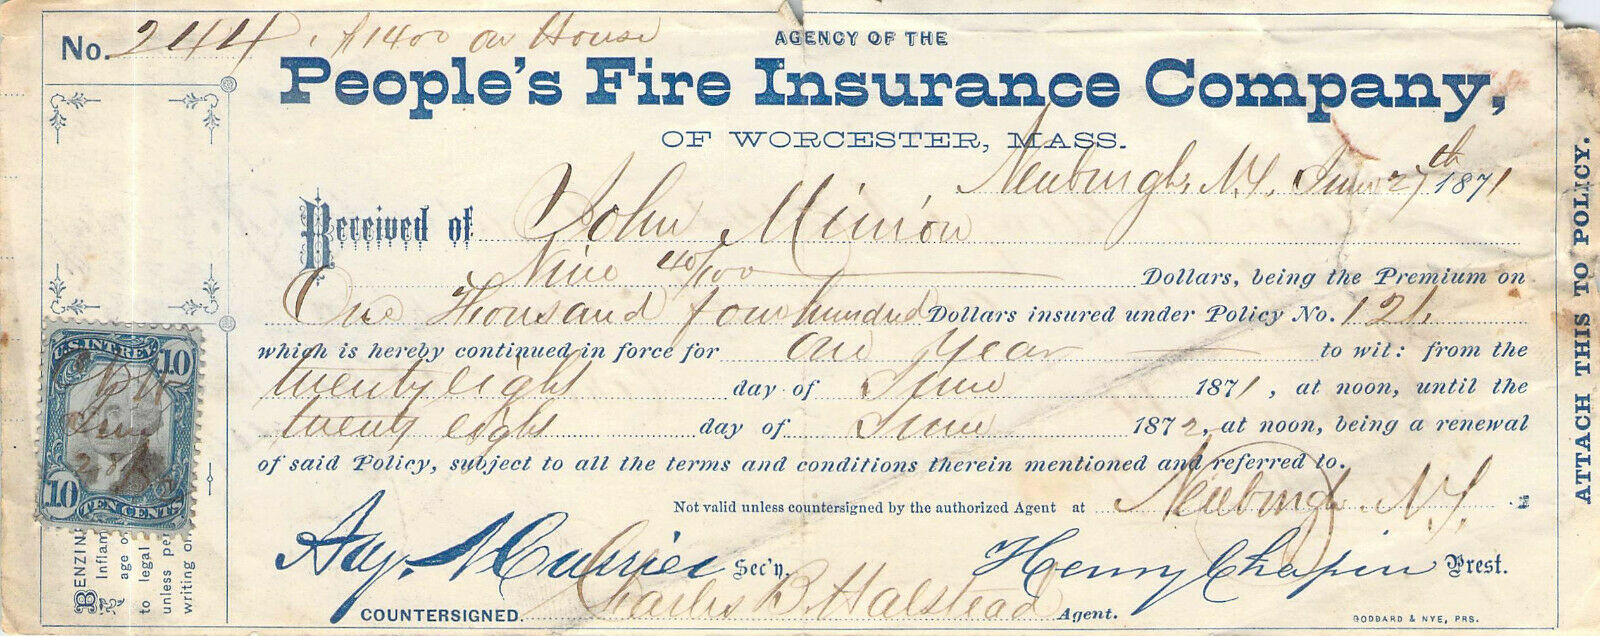 No. 244, $1400 on House
AGENCY OF THE
People's Fire Insurance Company,
OF WORCESTER, MASS.
Newburgh, N.Y. June 27th 1871
Received of John Minion
Nine 40/100 Dollars, being the Premium on
One Thousand four hundred Dollars insured under Policy No. 121,
which is hereby continued in force for One Year to wit: from the
twenty eight day of June 1871, at noon, until the
twenty eight day of June 1872, at noon, being a renewal
of said Policy, subject to all the terms and conditions therein mentioned and referred to.
Not valid unless countersigned by the authorized Agent at Newburgh N.Y.
Sec'y. Henry Chapin Prest.
COUNTERSIGNED. Charles B. Halstead Agent.
GODDARD & NYE, PRS.
ATTACH THIS TO POLICY.
U.S. INT. REV.
10 10
June
28
10
TEN CENTS
BENZIN
Inflam
age o
to legal
unless pe
writing o